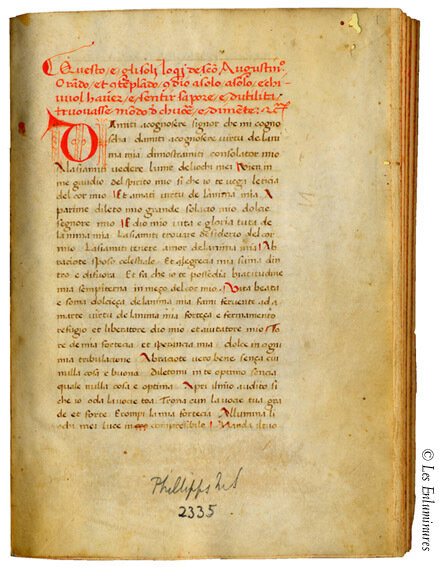 Questo e gli soli loqi de scō Augustino
orādo, et cōtēplādo 9 dio a solo a solo, e chi
vuol haver, e sentir sapore, e dutilita,
truovasse mōdo d chuore, e di mente:
Dami ti a cognosere signor che mi cogno
scha. dami ti a cognosere virtu de lani
ma mia dimostrami ti consolator mio
Lasiami ti vedere lume deli ochi mei Vien in
me gaudio del spirito mio si che io te vega leticia
del cor mio. Et amati virtu de lanima mia. A
partime dileto mio grande solacio mio dolce
segnore mio. E dio mio vita e gloria tuta de
lanima mia. Lasiami ti trouare desiderio del cor
mio. Lasiami ti tenere amor de lanima mia. A
braciote sposo celestiale. Et alegrecia mia suma din
tro e difuora. Et fa che io te possedia biatitudine
mia sempiterna in meço del cor mio. Vita beata
e soma dolceça de lanima mia fami fervente ad a
marte virtu de lanima mia forteça e fermamento
refugio et liberatore dio mio et aiutatore mio To
re de mia forteça et sperancia mia dolce in ogni
mia tribulacione Abraciote vero bene sença cui
nulla cosa e buona Diletomi in te optimo sencia
quale nulla cosa e optima. Apri ilmio audito si
che io oda la voce toa. Trona cun la voce tua gra
de et forte. Et compi la mia forteça Allumina li
ochi mei luce in compresibilo. Manda il tuo
Phillipps MS
2335
© Les Enluminures